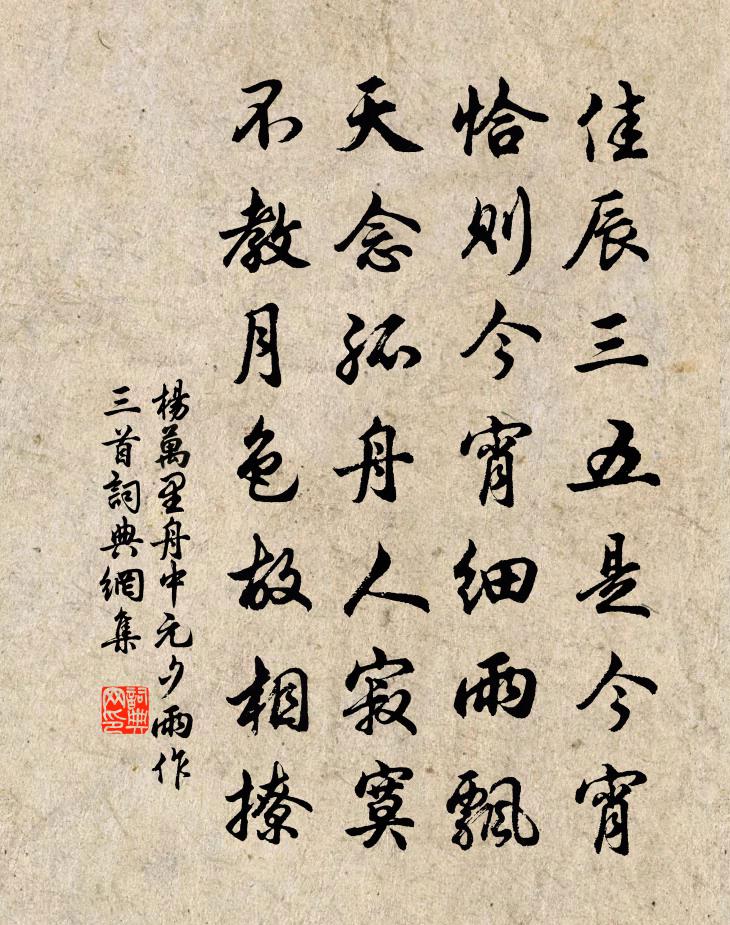 佳辰三五是今宵
恰則今宵細雨飄
天念孤舟人寂寞
不教月色故相撩
楊萬里舟中元夕雨作
三首詞典網集
詞典
网印